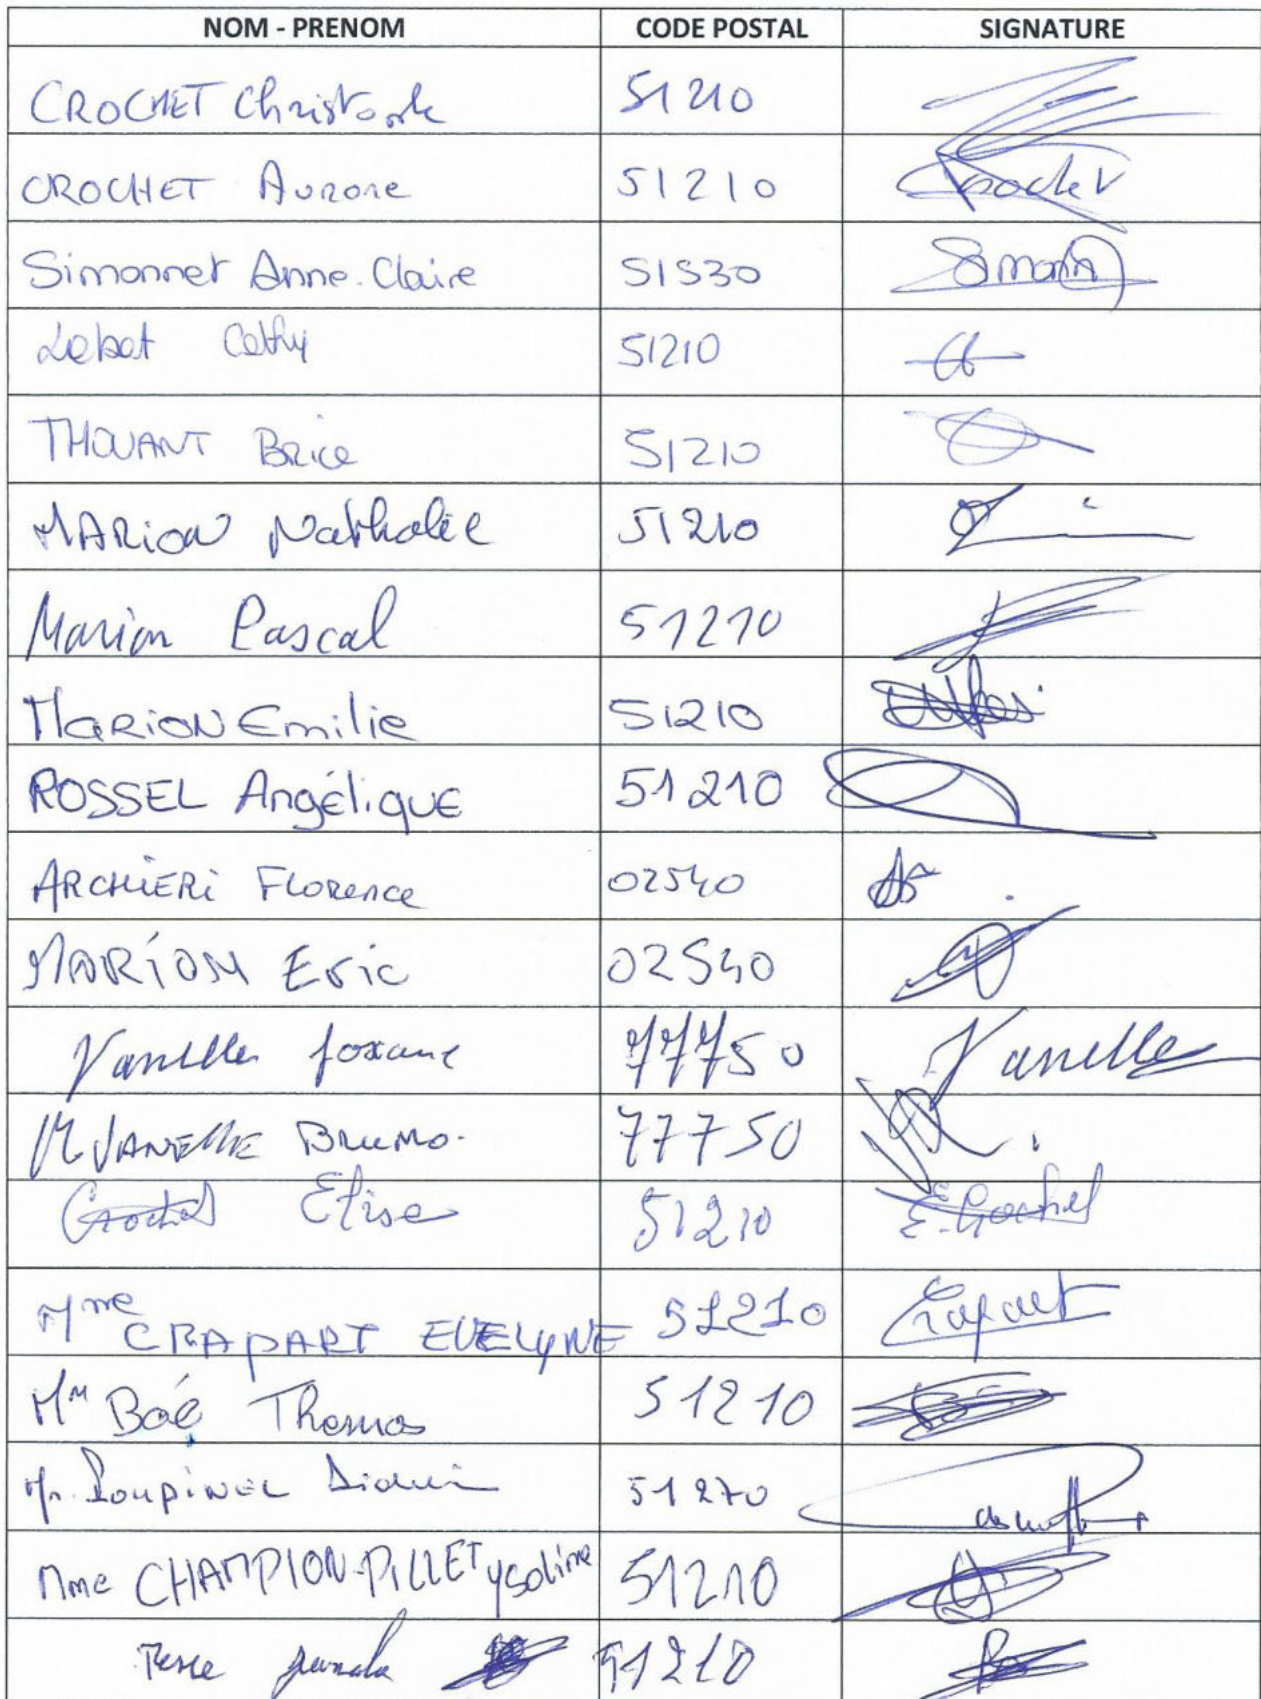 NOM - PRENOM CODE POSTAL SIGNATURE
CROCHET Christophe 51210
CROCHET Aurore 51210 Crochet
Simonnet Anne-Claire 51530
Lebat Cathy 51210
THOUANT Brice 51210
MARION Nathalie 51210
Marion Pascal 51210
MARION Emilie 51210
ROSSEL Angélique 51210
ARCHIERI Florence 02540
MARION Eric 02540
Vanelle 77750 Vanelle
M VANELLE Bruno. 77750
Crochet Elise 51210 E. Crochet
Mme CRAPART EVELYNE 51210 Crapart
Mr Boé Thomas 51210
Mr. Poupinel 51270
Mme CHAMPION-PILLET Ysoline 51210
51210